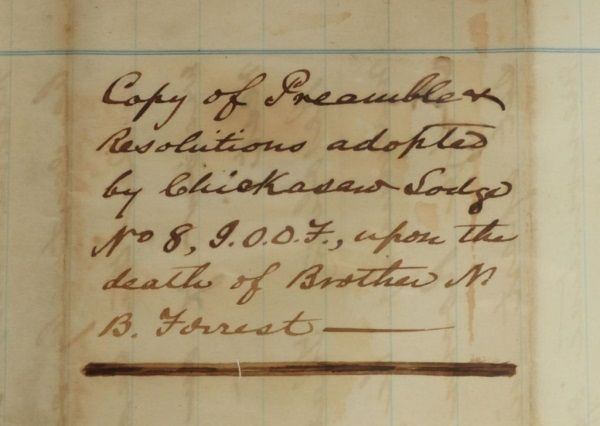 Copy of Preamble &
Resolutions adopted
by Chickasaw Lodge
No 8, I.O.O.F., upon the
death of Brother N
B. Forrest —